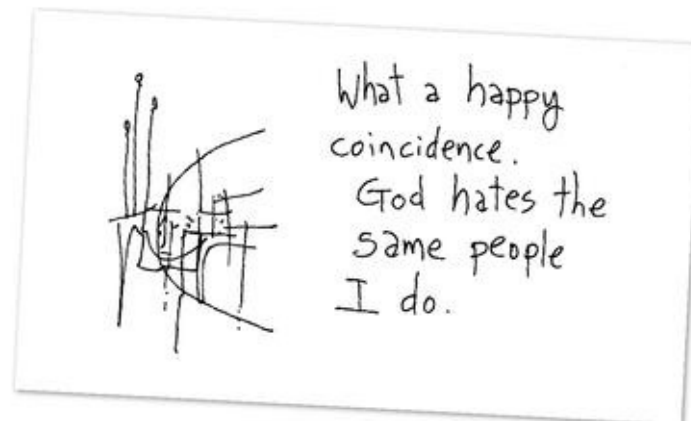 What a happy
coincidence.
God hates the
same people
I do.